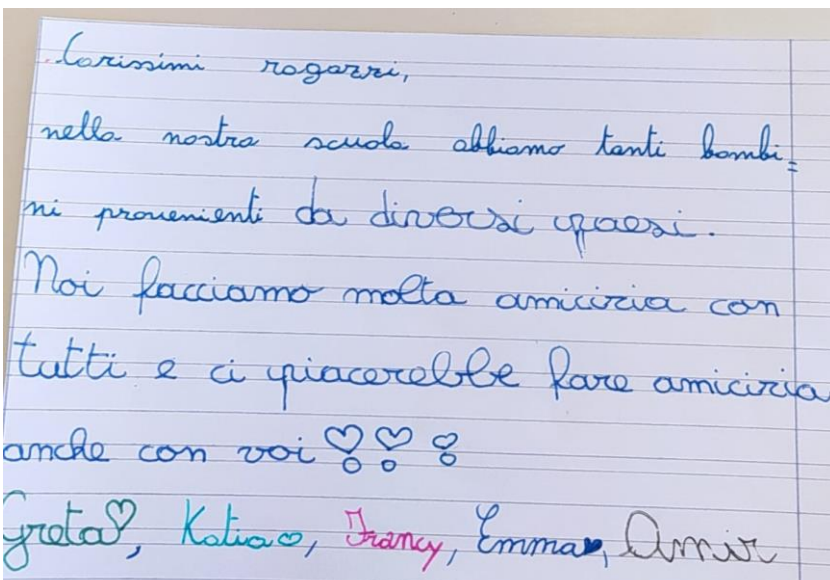 Carissimi ragazzi,
nella nostra scuola abbiamo tanti bambi=
ni provenienti da diversi paesi.
Noi facciamo molta amicizia con
tutti e ci piacerebbe fare amicizia
anche con voi!!!
Greta, Katia, Francy, Emma, Amir